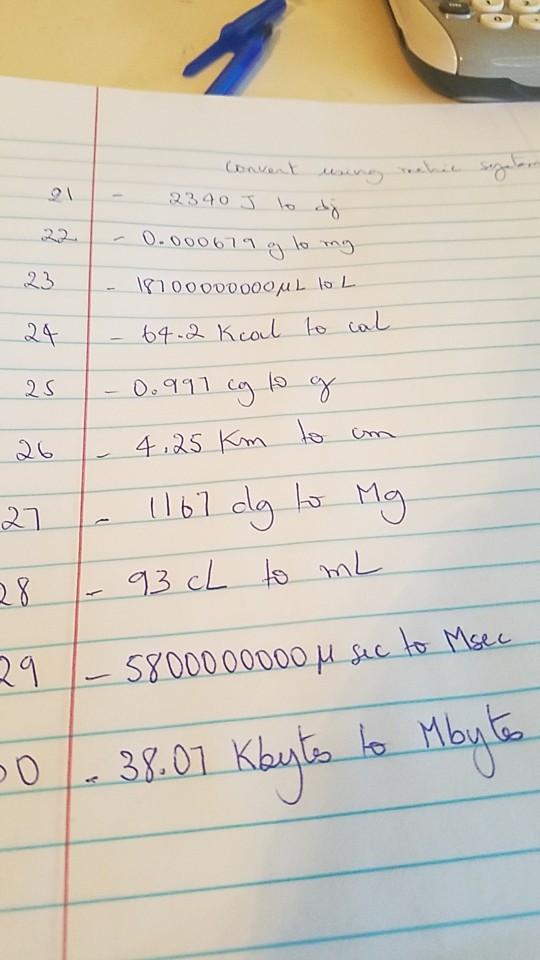 convert using metric system
21 - 2340 J to dj
22 - 0.000679 g to mg
23 - 18700000000 μL to L
24 - 64.2 Kcal to cal
25 - 0.997 cg to g
26 - 4.25 Km to cm
27 - 1167 dg to Mg
28 - 93 cL to mL
29 - 5800000000 μ sec to Msec
30 - 38.07 Kbytes to Mbytes